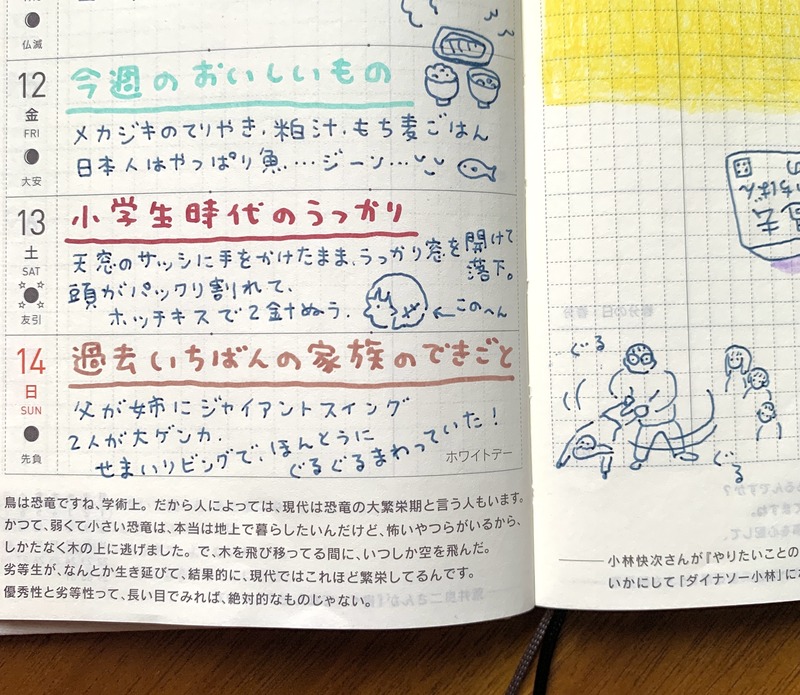 仏滅
12
金
FRI
大安
今週のおいしいもの
メカジキのてりやき、粕汁、もち麦ごはん
日本人はやっぱり魚…ジーン…
13
土
SAT
友引
小学生時代のうっかり
天窓のサッシに手をかけたまま、うっかり窓を開けて
落下。
頭がパックリ割れて、
ホッチキスで2針ぬう。
←このへん
14
日
SUN
先負
過去いちばんの家族のできごと
父が姉にジャイアントスイング
2人が大ゲンカ。
せまいリビングで、ほんとうに
ぐるぐるまわっていた!
ホワイトデー
鳥は恐竜ですね、学術上。だから人によっては、現代は恐竜の大繁栄期と言う人もいます。
かつて、弱くて小さい恐竜は、本当は地上で暮らしたいんだけど、怖いやつらがいるから、
しかたなく木の上に逃げました。で、木を飛び移ってる間に、いつしか空を飛んだ。
劣等生が、なんとか生き延びて、結果的に、現代ではこれほど繁栄してるんです。
優秀性と劣等性って、長い目でみれば、絶対的なものじゃない。
ぐる
ぐる
小林快次さんが『やりたいことの
いかにして「ダイナソー小林」に